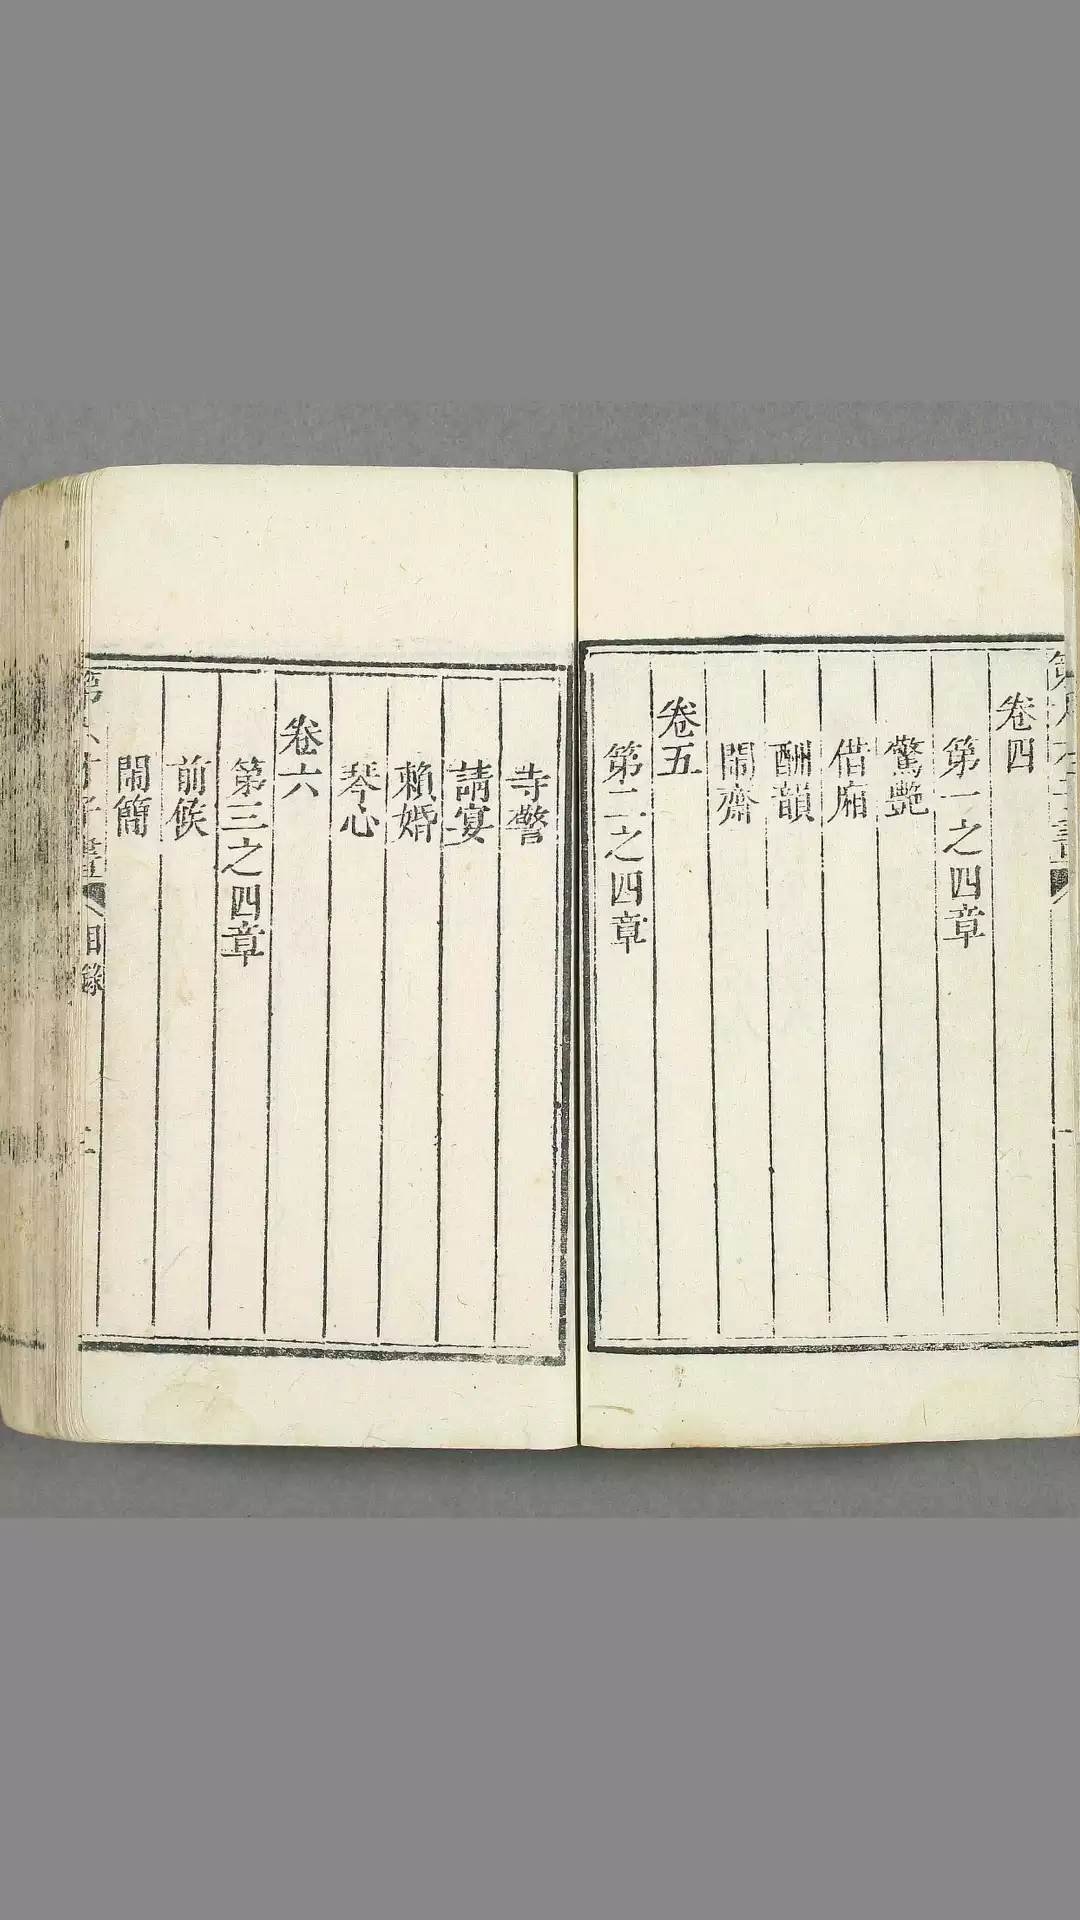 卷四
第一之四章
驚艷
借廂
酬韻
鬧齋
卷五
第二之四章
寺警
請宴
賴婚
琴心
卷六
第三之四章
前候
鬧簡
目錄